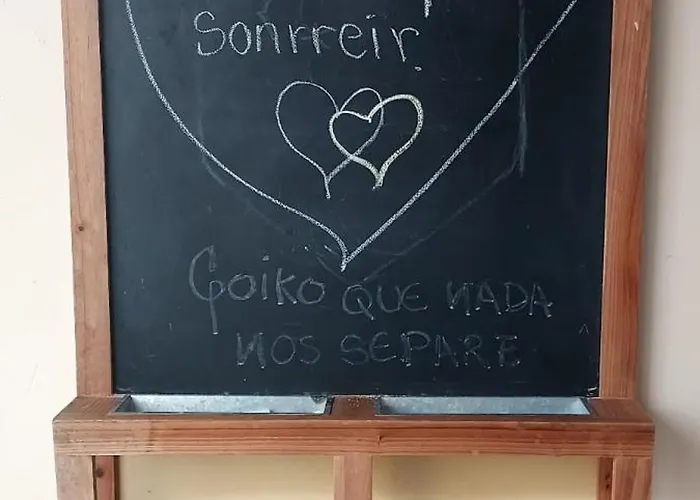 Sonrreir.
Goiko QUE NADA
NOS SEPARE